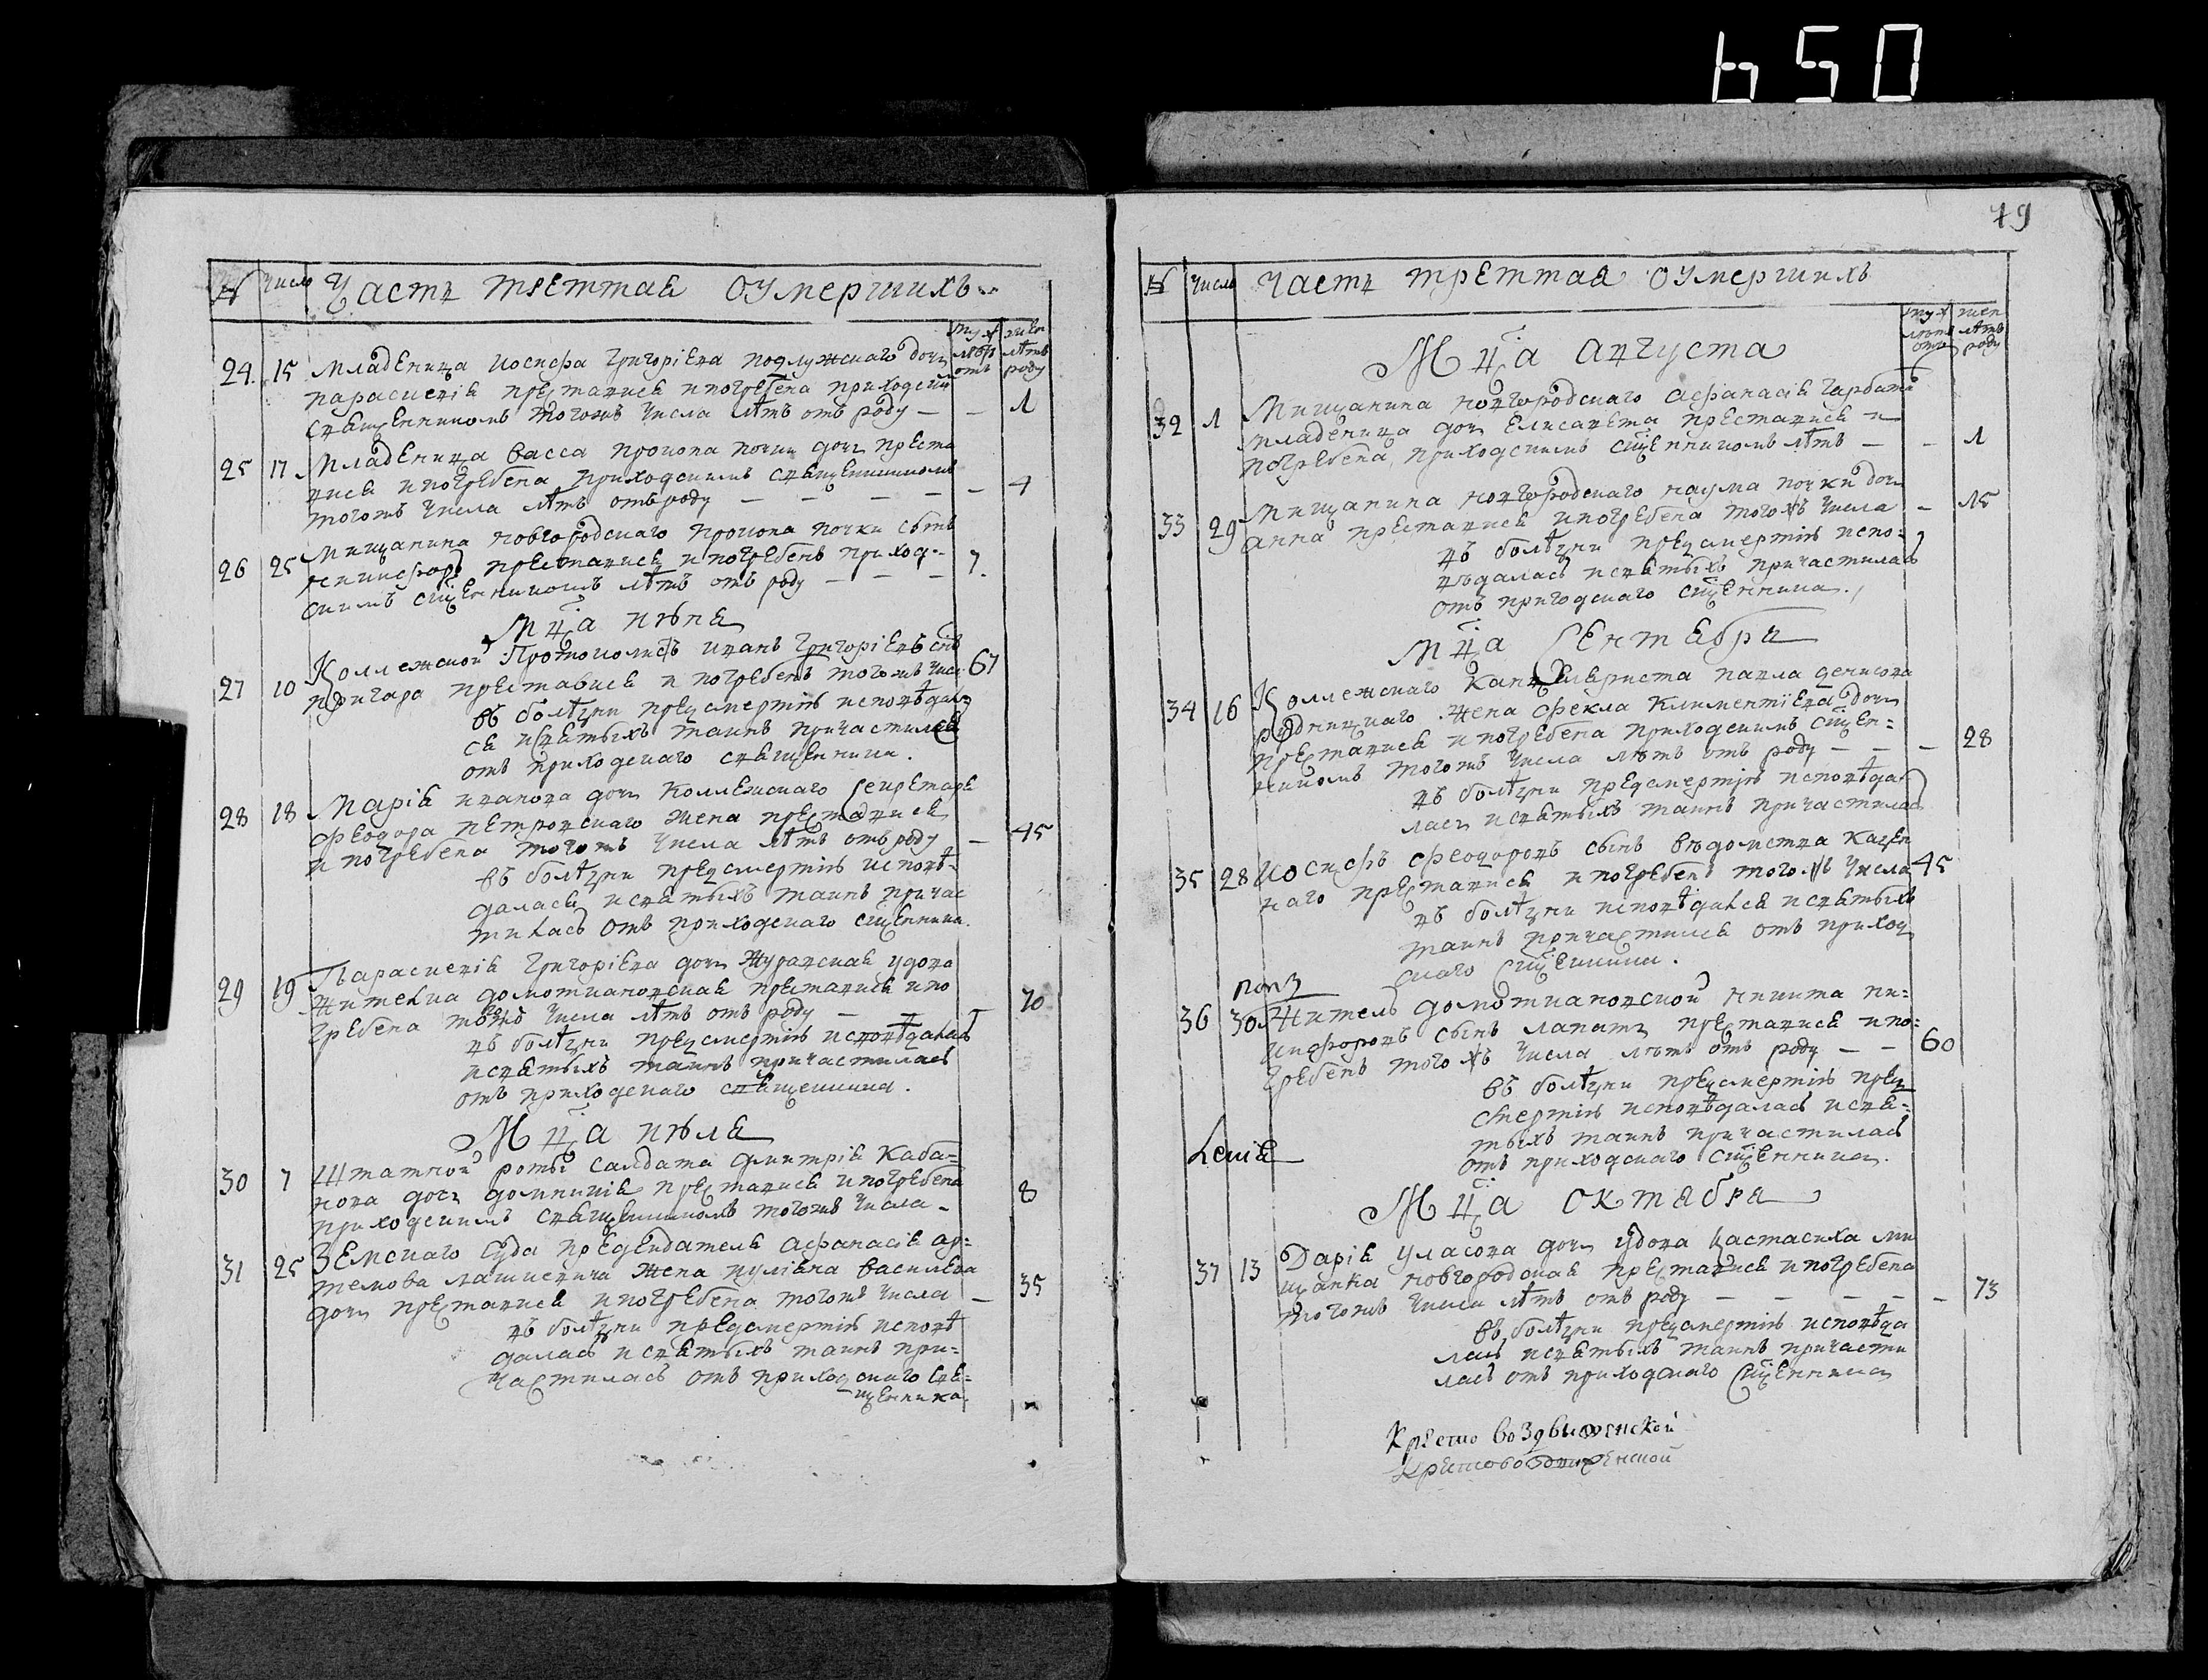 650
№ Число Часть треттая оумершихъ
муж женс
лѣтъ лѣтъ
отъ роду
24. 15 Младеница иосифа григорiева подлужнаго дочь
парасцевiя преставися и погребена приходским
священникомъ того жъ числа лѣтъ отъ роду — — 1
25 17 Младеница васса прокопа почки дочь преста
вися и погребена приходскимъ священникомъ
того жъ числа лѣтъ отъ роду — — — — — 4
26 25 Мищанина новгородскаго прокопа почки сынъ
никифоръ преставися и погребенъ приход-
скимъ сщенникомъ лѣтъ отъ роду — — — 7.
Мца июня
Коллежской Протоколистъ иванъ григорiевъ снъ
27 10 пригара преставися и погребенъ того жъ числ 67
въ болѣзни предсмертiи исповѣдал
ся и святыхъ таинъ причастился
отъ приходскаго священника.
28 18 Марiя иванова дочь коллежскаго секретаря
феодора петровскаго жена преставися
и погребена того жъ числа лѣтъ отъ роду — 45
въ болѣзни предсмертiи исповѣ-
далася и святыхъ таинъ причас
тилась отъ приходскаго сщенника.
29 19 Парасцевiя григорiева дочь журавская удова
жителка домоткановская преставися и по
гребена того жъ числа лѣтъ отъ роду — — — 70
въ болѣзни предсмертiи исповѣдалась
и святыхъ таинъ причастилась
отъ приходскаго священника.
Мца июля
30 7 Штатной роты салдата дмитрiя каба=
нова дочь домникiя преставися и погребена
приходскимъ священникомъ того жъ числа - 8
31 25 Земскаго суда председателя афанасiя ар=
темова лашкевича жена иулiяна василева
дочь преставися и погребена того жъ числа — 35
въ болѣзни предсмертiи исповѣ
далась и святыхъ таинъ при=
частилась отъ приходскаго свя=
щенника
79
№ Число Часть треттая оумершихъ
муж жен
лѣтъ лѣтъ
отъ роду
Мца августа
32 1 Мищанина новгородскаго афанасiя гарбати
младеница дочь елисавета преставися и
погребена приходскимъ сщенникомъ лѣтъ — - 1
33 29 Мищанина новгородскаго наума почки дочь
анна преставися и погребена того жъ числа - 15
въ болѣзни предсмертiи испо=
вѣдалась и святыхъ причастилась
отъ приходскаго сщенника.
Мца Сентября
34 16 Коллежскаго канцеляриста павла денисова
рудницкаго жена фекла климентiева дочь
преставися и погребена приходскимъ сщен=
никомъ того жъ числа лѣтъ отъ роду — — — 28
въ болѣзни предсмертiи исповѣда
лась и святыхъ таинъ причастилась
35 28 Иосифъ феодоровъ сынъ вѣдомства казен
наго преставися и погребенъ того жъ числа 45
въ болѣзни исповѣдался и святыхъ
таинъ причастился отъ приход
скаго сщенника.
36 30 Житель домоткановской никита ни=
кифоровъ сынъ лапать преставися и по=
гребенъ того жъ числа лѣтъ отъ роду — — 60
въ болѣзни предсмертiи пред
смертiи исповѣдалась и свя=
тыхъ таинъ причастилась
отъ приходскаго сщенника.
Мца октября
37 13 Дарiя уласова дочь удова частасиха ми
щанка новгородская преставися и погребена
того жъ числа лѣтъ отъ роду — — — — — 73
въ болѣзни предсмертiи исповѣда
лась и святыхъ таинъ причасти
лась отъ приходскаго сщенника
Кресто воздвиженской